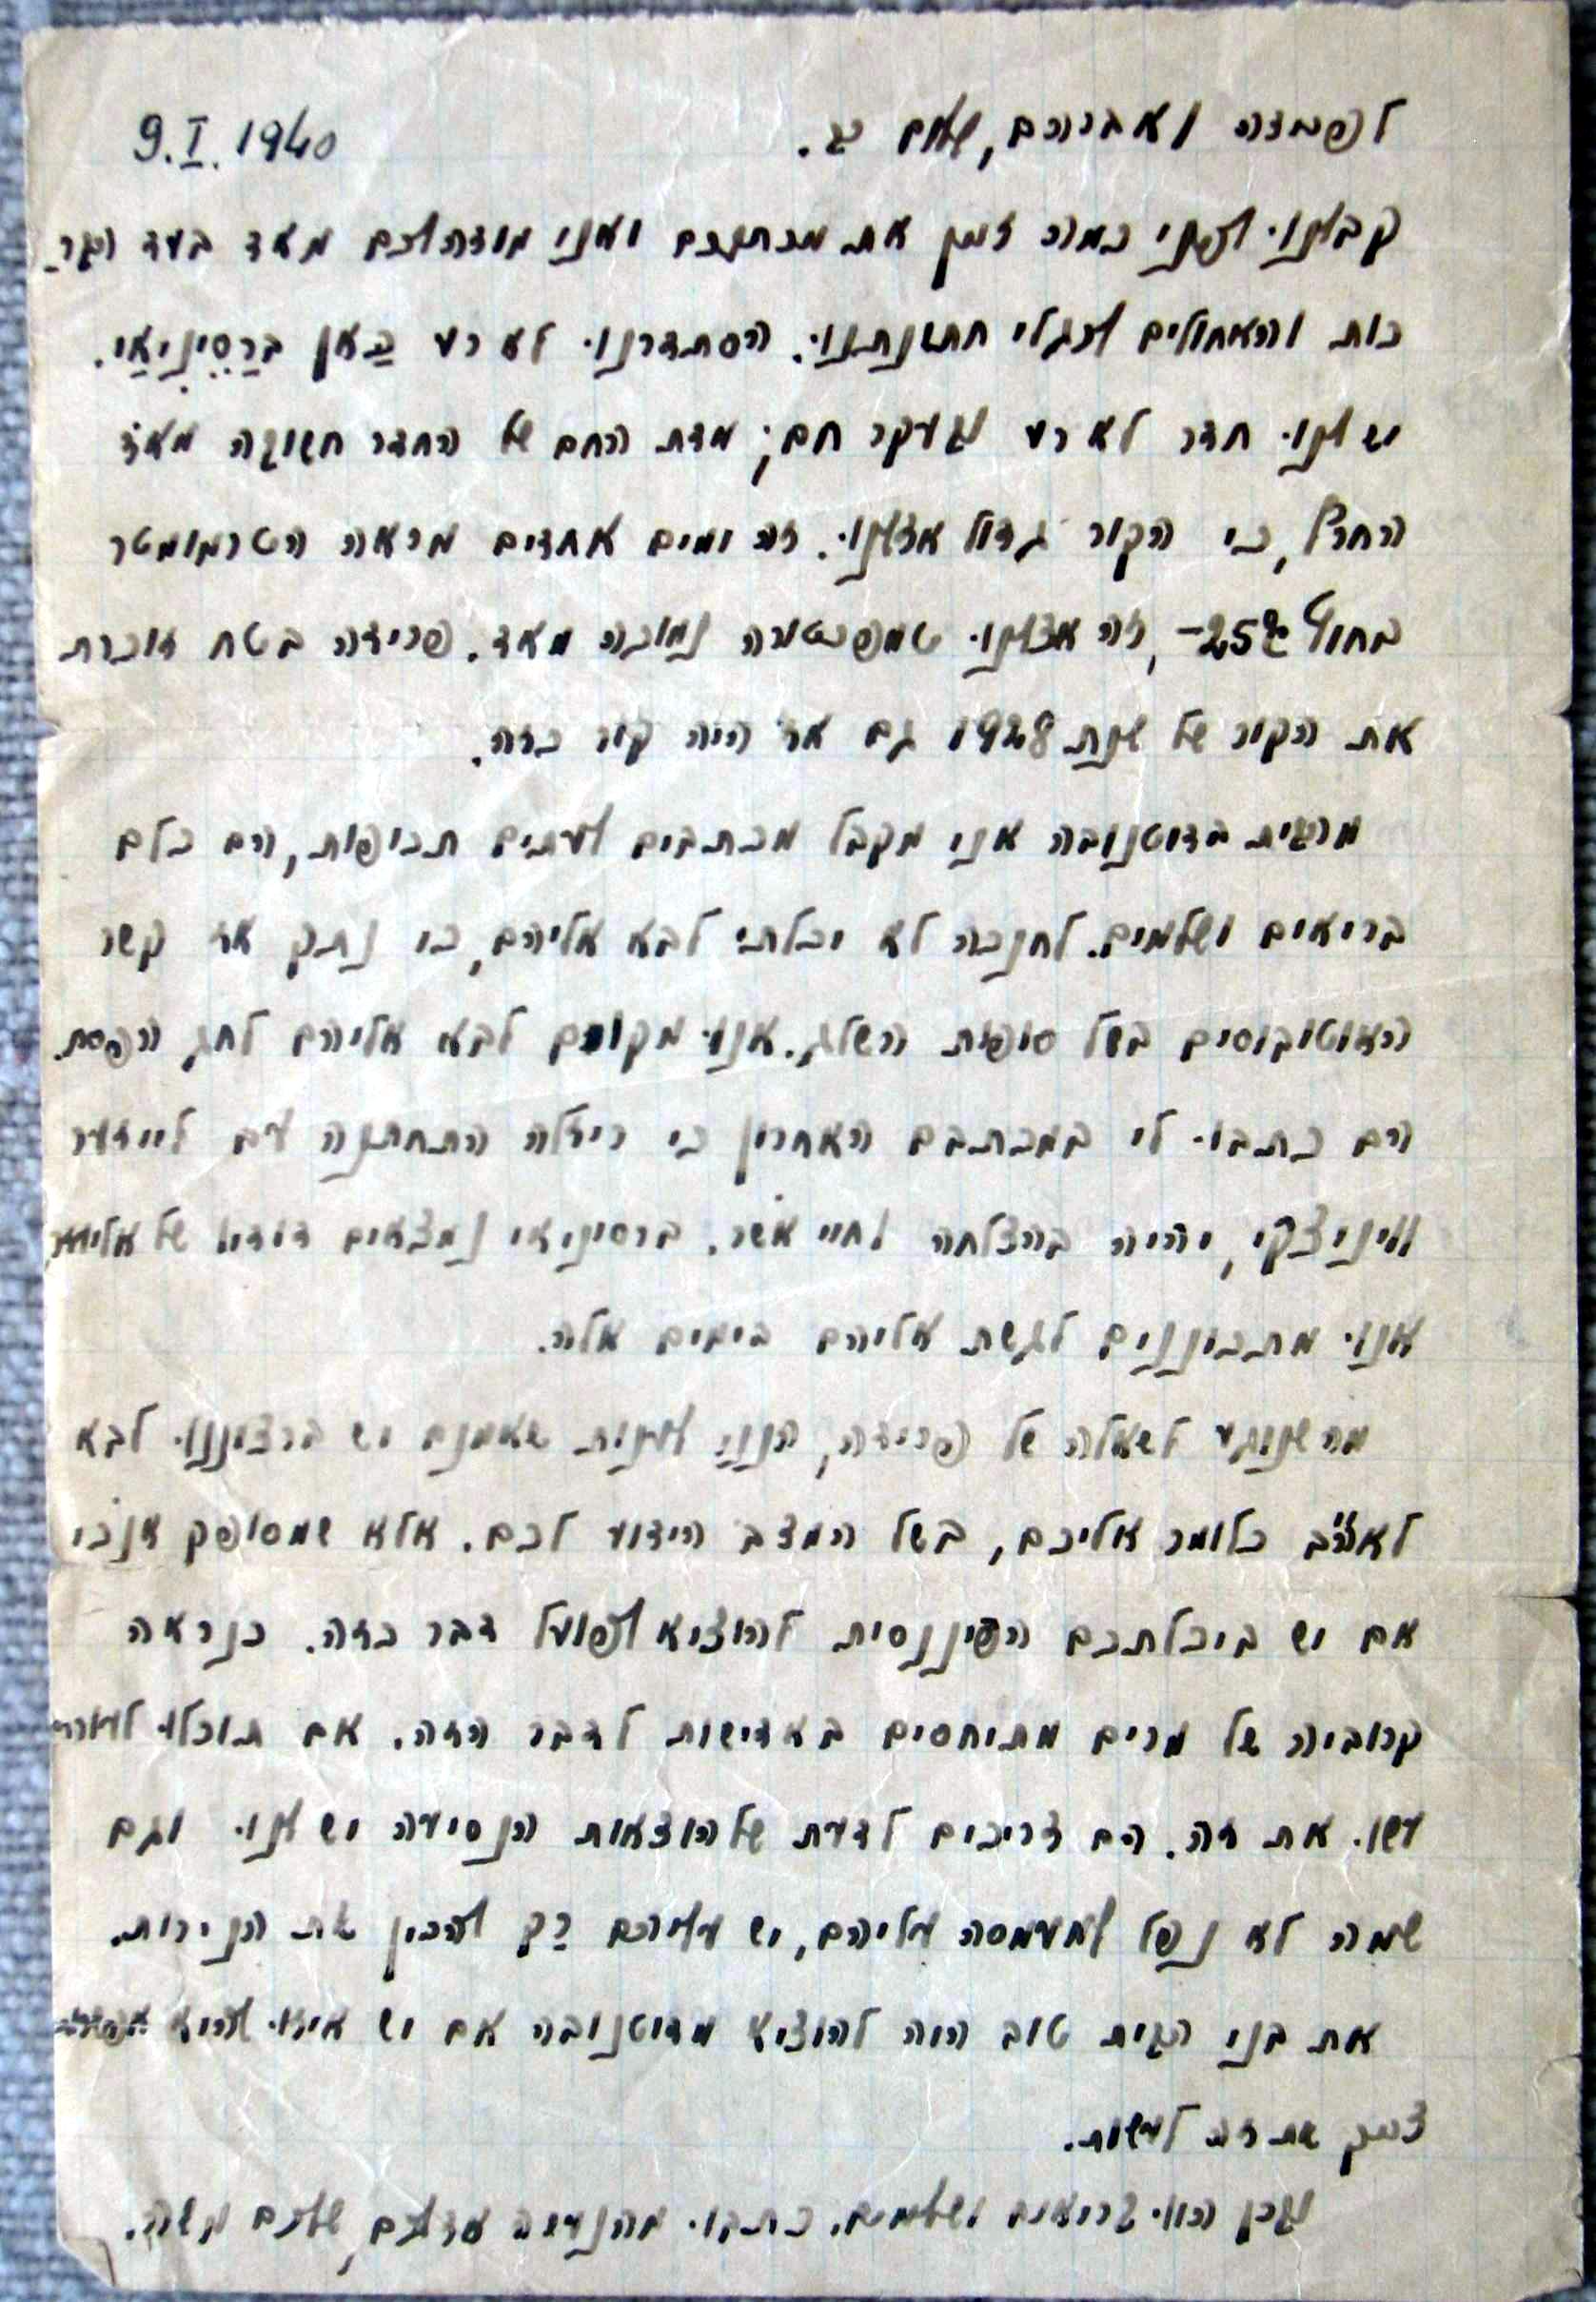 לפרידה ואברהם, שלום רב. 9.I.1940
קבלנו לפני כמה זמן את מכתבכם ואני מודה לכם מאד בעד הבר-
כות והאחולים לרגלי חתונתנו. הסתדרנו לא רע כַּאן ברַסֵינַיאַי.
יש לנו חדר לא רע ובעקר חם; מדת החם של החדר חשובה מאד
החרף, כי הקור גדול אצלנו. זה ימים אחדים מראה הטרמומטר
בחוץ -25°, זה אצלנו טמפרטורה נמוכה מאד. פרידה בטח זוכרת
את הקור של שנת 1928 גם אז היה קור כזה.
מהבית בדוטנובה אני מקבל מכתבים לעתים תכופות, הם כלם
בריאים ושלמים. לחנכה לא יכלתי לבא אליהם, כי נתק אז קשר
האוטובוסים בשל סופות השלג. אנו מקוים לבא אליהם לחג הפסח.
הם כתבו לי במכתבם האחרון כי רײזלה התחתנה עם לײזער
וויניצקי, יהיה בהצלחה לחיי אשר. ברסיניאי נמצאים דודיו של
אנו מתכוננים לגשת אליהם בימים אלה.
מה שנוגע לשאלה של פרידה, הנני לענות שאמנם יש ברצוננו לבא
לאה"ב כלומר אליכם, בשל המצב הידוע לכם. אלא שמסופק אנכי
אם יש ביכלתכם הפיננסית להוציא לפועל דבר כזה. כנראה
קרוביה של מרים מתיחסים באדישות לדבר הזה. אם תוכלו
עשו את זה. הם צריכים לדעת שלהוצאות הנסיעה יש לנו וגם
שמה לא נפל למעמסה עליהם, יש עליהם רַק להכין את הנירות.
את בני הבית טוב היה להוציא מדוטנובה אם יש איזו
צריך את זה לעשות.
ובכן היו בריאים ושלמים. כתבו מהנעשה אצלכם, שלכם משה.